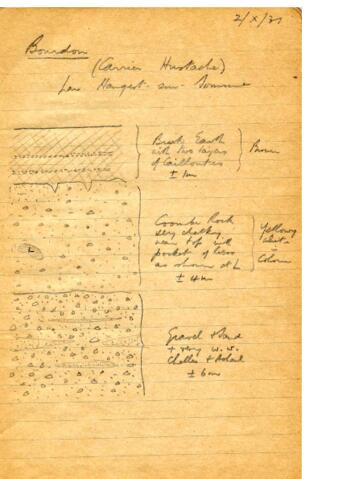 2/X/31
Bourdon
(Carrier Hustache)
Hangest-sur-Somme
Brick Earth
with two layers
of Cailloutis
± 1m
Brown
Coombe Rock
very chalky
near top with
pocket of loess
as shown at L
± 4m
Yellowy
white
Colour
L
Gravel + Sand
+ very w.w.
Chelles + Acheul
± 6m